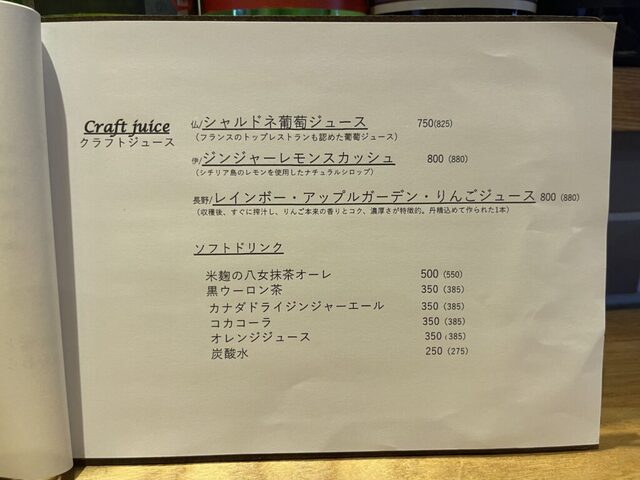 Craft juice
クラフトジュース
仏/シャルドネ葡萄ジュース 750(825)
(フランスのトップレストランも認めた葡萄ジュース)
伊/ジンジャーレモンスカッシュ 800 (880)
(シチリア島のレモンを使用したナチュラルシロップ)
長野/レインボー・アップルガーデン・りんごジュース 800 (880)
(収穫後、すぐに搾汁し、りんご本来の香りとコク、濃厚さが特徴的。丹精込めて作られた1本)
ソフトドリンク
米麹の八女抹茶オーレ 500 (550)
黒ウーロン茶 350 (385)
カナダドライジンジャーエール 350 (385)
コカコーラ 350 (385)
オレンジジュース 350 (385)
炭酸水 250 (275)